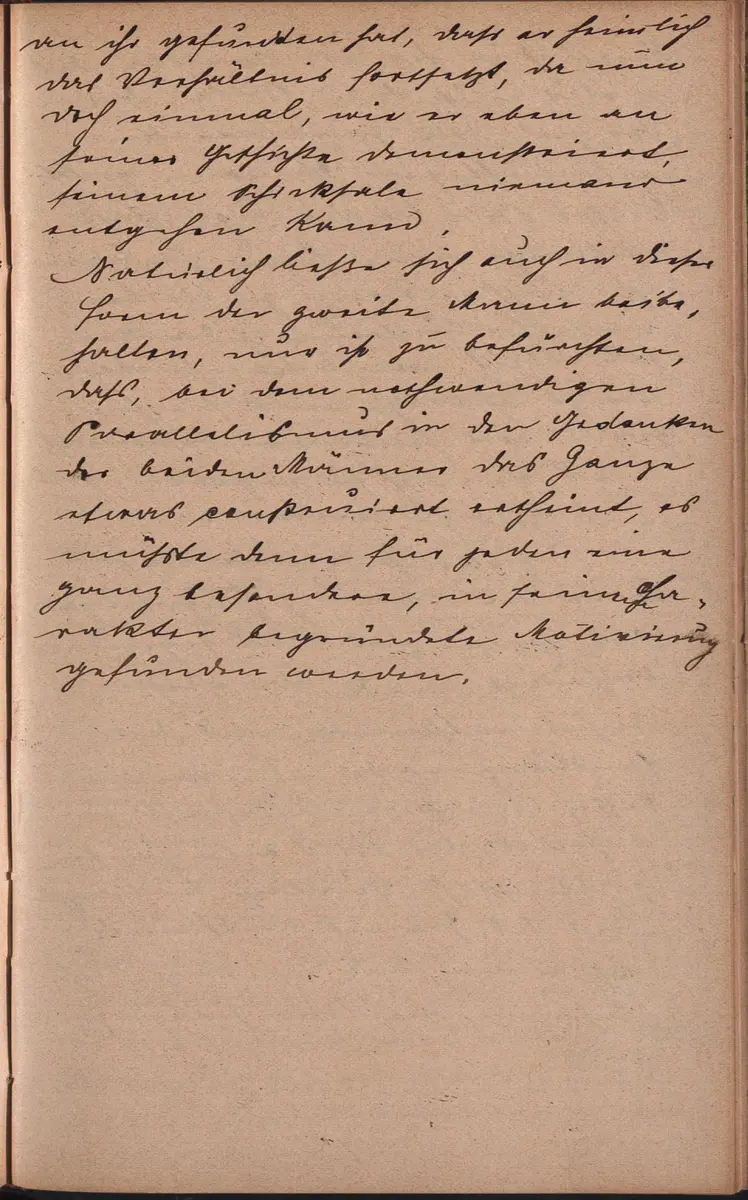 an ihr gefunden hat, dass er heimlich
das Verhältnis fortsetzt, da nun
doch einmal, wie er eben an
seiner Geschichte demonstriert,
seinem Schicksale niemand
entgehen kann.
Natürlich ließe sich auch in dieser
Form der zweite Mann beibe-
halten, nur ist zu befürchten,
dass, bei dem nothwendigen
Parallelismus in den Gedanken
der beiden Männer das Ganze
etwas construiert erscheint, es
müsste denn für jeden eine
ganz besondere, in seinem Cha-
rakter begründete Motivierung
gefunden werden.